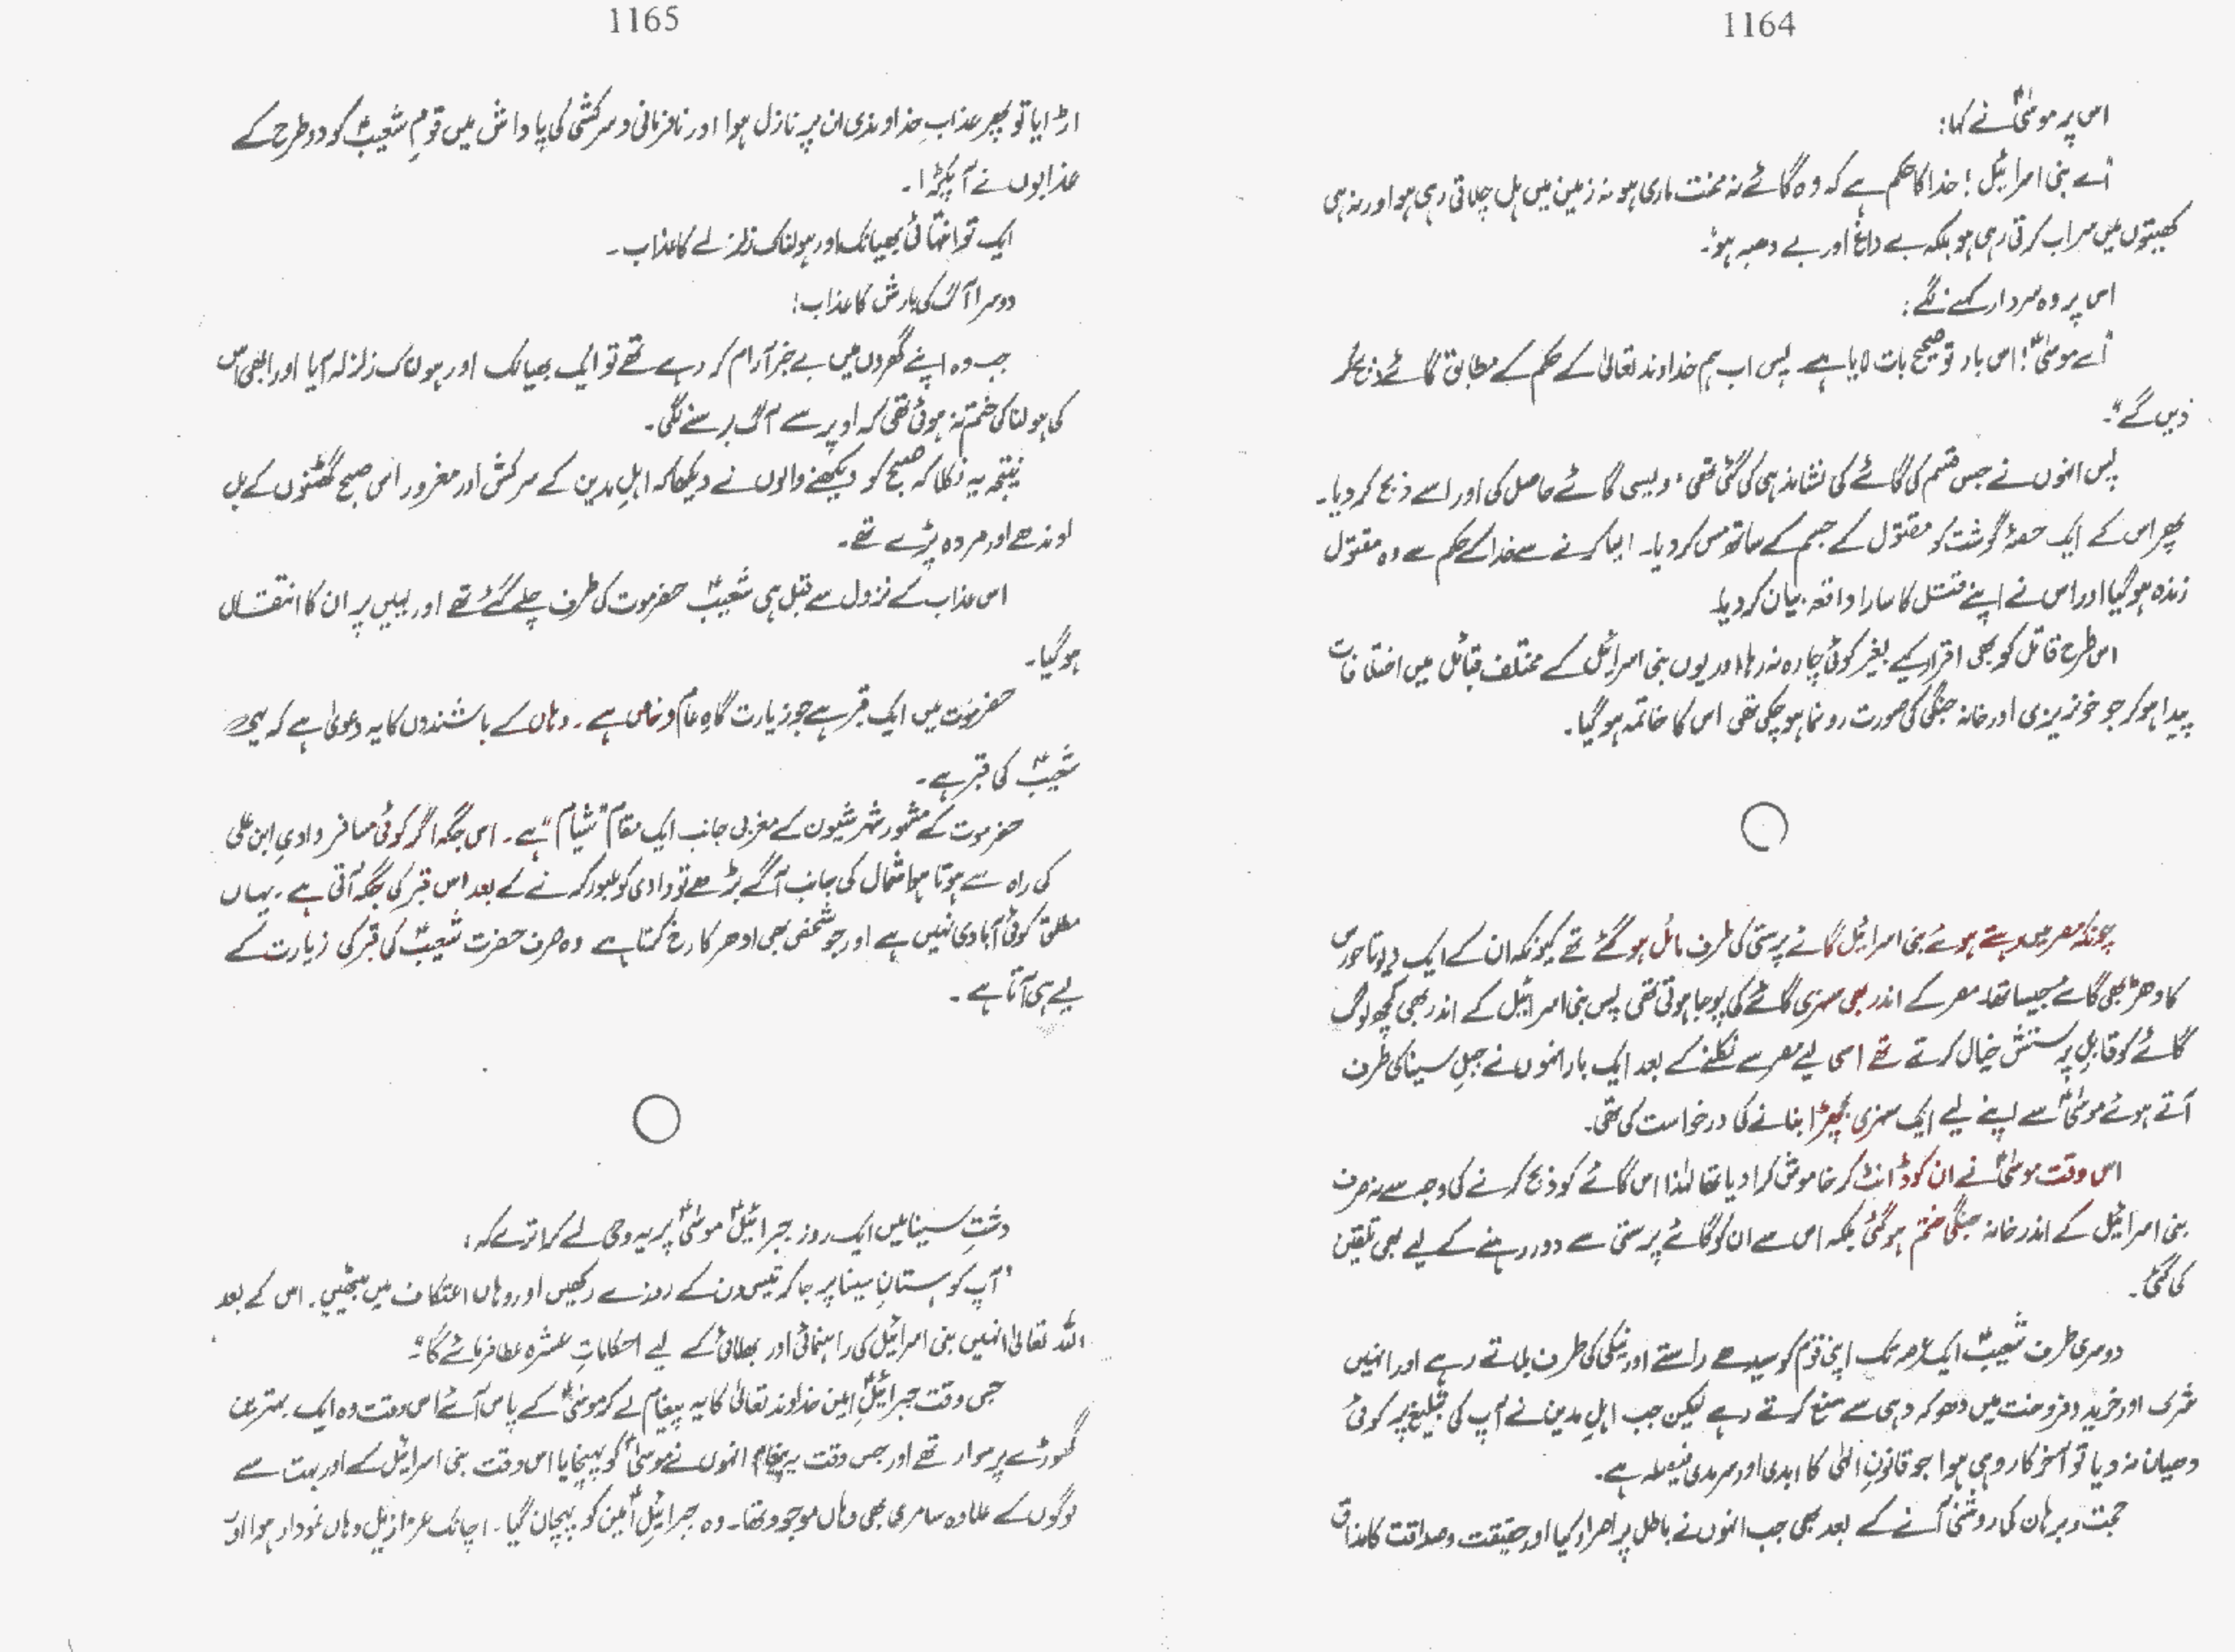 1164
اس پر موسیٰؑ نے کہا:
"اے بنی اسرائیل! خدا کا حکم ہے کہ وہ گائے نہ محنت ماری ہو نہ زمین میں ہل چلاتی رہی ہو اور نہ ہی
کھیتوں میں سراب کرتی رہی ہو بلکہ بے داغ اور بے دھبہ ہو"۔
اس پر وہ سردار کہنے لگے:
"اے موسیٰؑ! اس بار تو صحیح بات لایا ہے پس اب ہم خداوند تعالیٰ کے حکم کے مطابق گائے ذبح کر
دیں گے"۔
پس انہوں نے جس قسم کی گائے کی نشاندہی کی گئی تھی، ویسی گائے حاصل کی اور اسے ذبح کر دیا۔
پھر اس کے ایک حصۂ گوشت کو مقتول کے جسم کے ساتھ مس کر دیا۔ ایسا کرنے سے خدا کے حکم سے وہ مقتول
زندہ ہو گیا اور اس نے اپنے قتل کا سارا واقعہ بیان کر دیا۔
اس طرح قاتل کو بھی اقرار کیے بغیر کوئی چارہ نہ رہا اور یوں بنی اسرائیل کے مختلف قبائل میں اختلافات
پیدا ہو کر جو خونریزی اور خانہ جنگی کی صورت رونما ہو چکی تھی اس کا خاتمہ ہو گیا۔
چونکہ مصر میں رہتے ہوئے بنی اسرائیل گائے پرستی کی طرف مائل ہو گئے تھے کیونکہ ان کے ایک دیوتا حورس
کا دھڑ بھی گائے جیسا تھا۔ مصر کے اندر بھی سنہری گائے کی پوجا ہوتی تھی پس بنی اسرائیل کے اندر بھی کچھ لوگ
گائے کو قابلِ پرستش خیال کرتے تھے اسی لیے مصر سے نکلنے کے بعد ایک بار انہوں نے جبلِ سینا کی طرف
آتے ہوئے موسیٰؑ سے اپنے لیے ایک سنہری بچھڑا بنانے کی درخواست کی تھی۔
اس وقت موسیٰؑ نے ان کو ڈانٹ کر خاموش کرا دیا تھا لہٰذا اس گائے کو ذبح کرنے کی وجہ سے نہ صرف
بنی اسرائیل کے اندر خانہ جنگی ختم ہو گئی بلکہ اس سے ان کو گائے پرستی سے دور رہنے کے لیے بھی تلقین
کی گئی۔
دوسری طرف شعیبؑ ایک عرصہ تک اپنی قوم کو سیدھے راستے اور نیکی کی طرف بلاتے رہے اور انہیں
شرک اور خرید و فروخت میں دھوکہ دہی سے منع کرتے رہے لیکن جب اہلِ مدین نے آپ کی تبلیغ پر کوئی
دھیان نہ دیا تو آخر کار وہی ہوا جو قانونِ الٰہی کا ابدی اور سرمدی فیصلہ ہے۔
حجت و برہان کی روشنی آنے کے بعد بھی جب انہوں نے باطل پر اصرار کیا اور حقیقت و صداقت کا مذاق
1165
اڑایا تو پھر عذابِ خداوندی ان پر نازل ہوا اور نافرمانی و سرکشی کی پاداش میں قومِ شعیبؑ کو دو طرح کے
عذابوں نے آ پکڑا۔
ایک تو انتہائی بھیانک اور ہولناک زلزلے کا عذاب۔
دوسرا آگ کی بارش کا عذاب!
جب وہ اپنے گھروں میں بے خبر آرام کر رہے تھے تو ایک بھیانک اور ہولناک زلزلہ آیا اور ابھی اس
کی ہولناکی ختم نہ ہوئی تھی کہ اوپر سے آگ برسنے لگی۔
نتیجہ یہ نکلا کہ صبح کو دیکھنے والوں نے دیکھا کہ اہلِ مدین کے سرکش اور مغرور اس صبح گھٹنوں کے بل
اوندھے اور مردہ پڑے تھے۔
اس عذاب کے نزول سے قبل ہی شعیبؑ حضرموت کی طرف چلے گئے تھے اور یہیں پر ان کا انتقال
ہو گیا۔
حضرموت میں ایک قبر ہے جو زیارت گاہِ عام و خاص ہے۔ وہاں کے باشندوں کا یہ دعویٰ ہے کہ یہی
شعیبؑ کی قبر ہے۔
حضرموت کے مشہور شہر شیون کے مغربی جانب ایک مقام "شبام" ہے۔ اس جگہ اگر کوئی مسافر وادیِ ابن علی
کی راہ سے ہوتا ہوا شمال کی جانب آگے بڑھے تو وادی کو عبور کرنے کے بعد اس قبر کی جگہ آتی ہے۔ یہاں
مطلق کوئی آبادی نہیں ہے اور جو شخص بھی ادھر کا رخ کرتا ہے وہ صرف حضرت شعیبؑ کی قبر کی زیارت کے
لیے ہی آتا ہے۔
دشتِ سینا میں ایک روز جبرائیلؑ موسیٰؑ پر یہ وحی لے کر اترے کہ:
"آپ کوہستانِ سینا پر جا کر تیس دن کے روزے رکھیں اور وہاں اعتکاف میں بیٹھیں۔ اس کے بعد
اللہ تعالیٰ انہیں بنی اسرائیل کی راہنمائی اور بھلائی کے لیے احکاماتِ عشرہ عطا فرمائے گا"۔
جس وقت جبرائیلِؑ امین خداوند تعالیٰ کا یہ پیغام لے کر موسیٰؑ کے پاس آئے اس وقت وہ ایک بہترین
گھوڑے پر سوار تھے اور جس وقت یہ پیغام انہوں نے موسیٰؑ کو پہنچایا اس وقت بنی اسرائیل کے اور بہت سے
لوگوں کے علاوہ سامری بھی وہاں موجود تھا۔ وہ جبرائیلِ امینؑ کو پہچان گیا۔ اچانک عزازیل وہاں نمودار ہوا اور